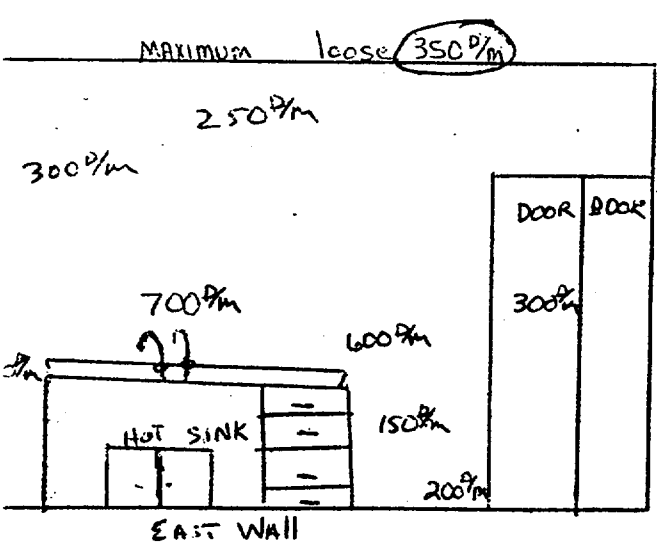 MAXIMUM loose 350 D/m
250 D/m
300 D/m
DOOR DOOR
700 D/m
300 D/m
600 D/m
D/m
150 D/m
HOT SINK
200 D/m
EAST WALL